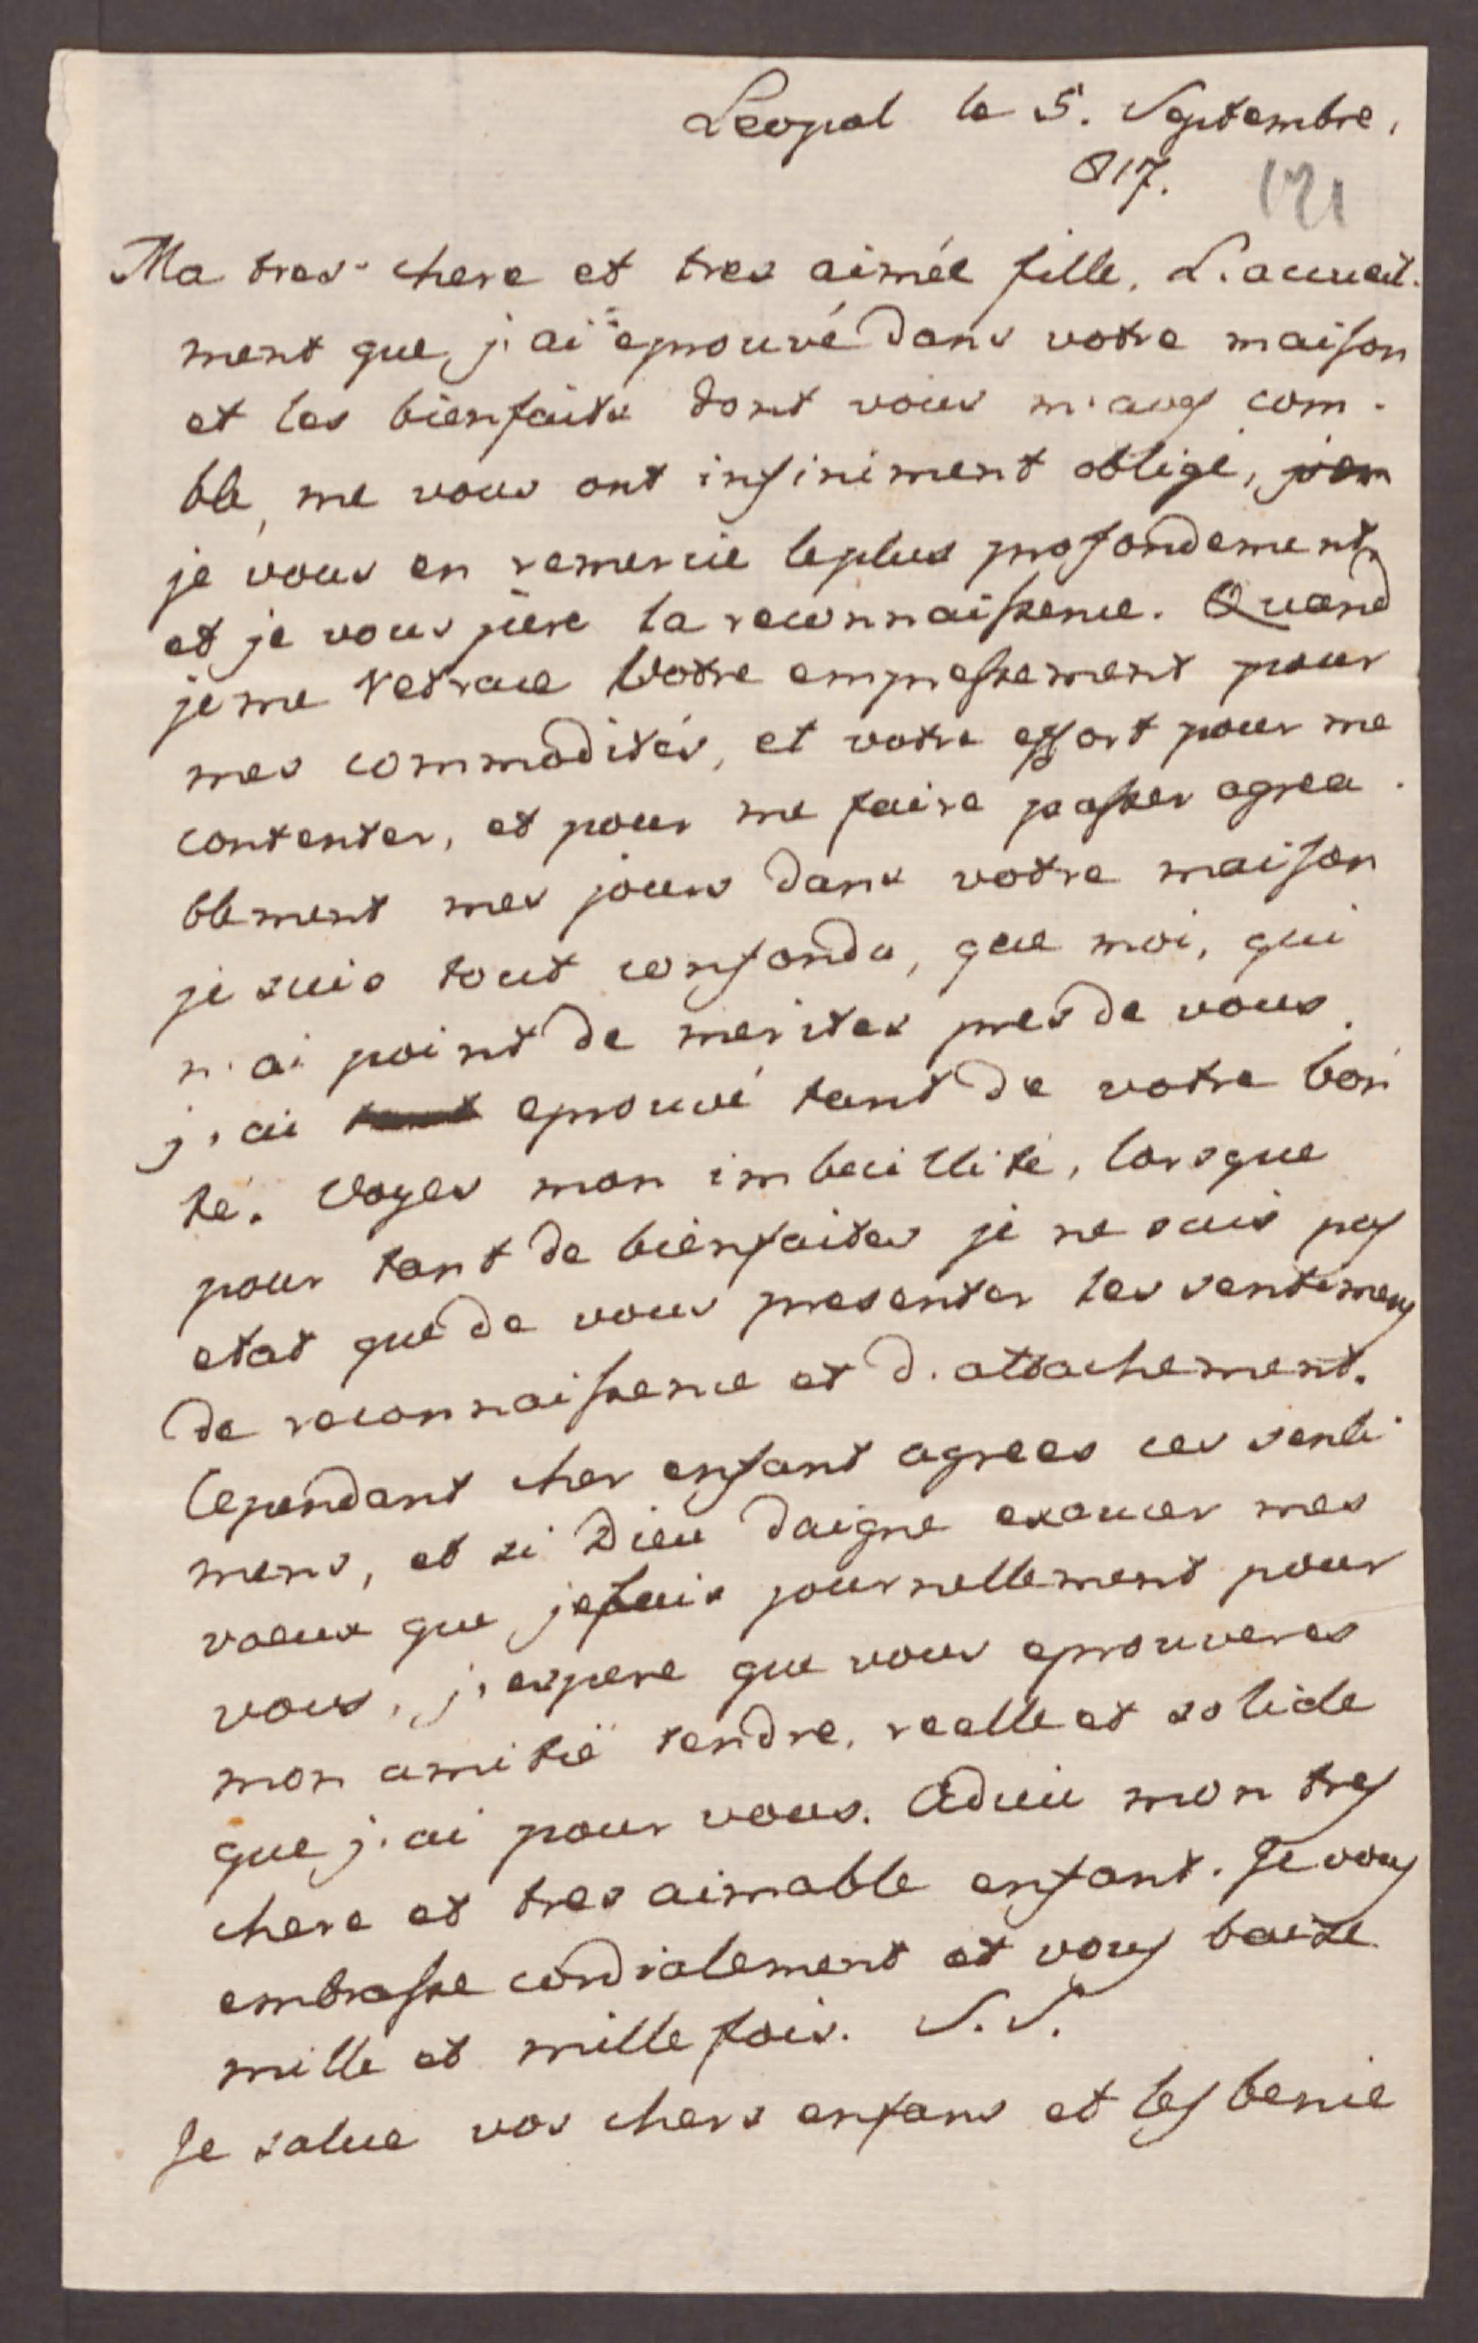 Leopol le 5. Septembre,
817. 121
Ma tres chere et tres aimée fille, L'accueil-
ment que j'ai eprouvé dans votre maison
et les bienfaits dont vous m'aves com-
blé, me vous ont infiniment obligé,
je vous en remercie leplus profondement
et je vous jure la reconnaissence. Quand
je me retrace Votre empressement pour
mes commodités, et votre effort pour me
contenter, et pour me faire passer agrea-
blement mes jours dans votre maison
je suis tout confondu, que moi, qui
n'ai point de merites pres de vous.
j'ai eprouvé tant de votre bon-
té. Voyes mon imbecillité, lorsque
pour tant de bienfaites je ne suis pas
etat que de vous presenter les sentimens
de reconnaissence et d'attachement.
Cependant cher enfant agrees ces senti-
mens, et si Dieu daigne exaucer mes
voeux que je fais journellement pour
vous, j'espere que vous eprouveres
mon amitié tendre, reelle et solide
que j'ai pour vous. Adieu mon tres
chere et tres aimable enfant. Je vous
embrasse cordialement et vous baise
mille et mille fois. S.S.
Je salue vos chers enfans et les benie